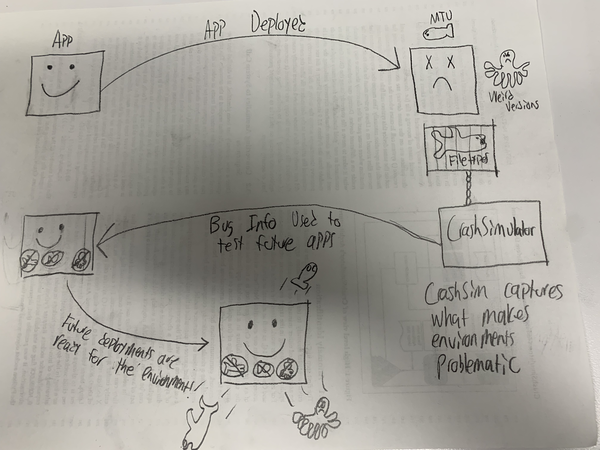 App
App Deployed
MTU
Weird
Versions
Filetypes
Bug Info Used to
test future apps
CrashSimulator
CrashSim captures
what makes
environments
Problematic
Future deployments are
ready for the environment!